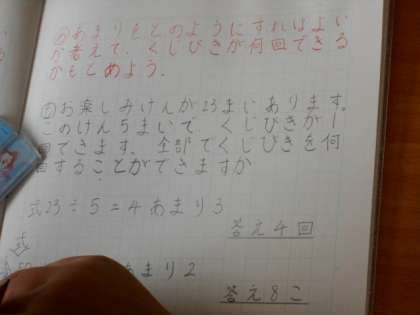 めあまりをどのようにすればよい
か考えて、くじびきが何回できる
かもとめよう。
もお楽しみけんが23まいあります。
このけん5まいで、くじびきが1
回できます。全部でくじびきを何
することができますか
式23÷5=4あまり3
答え4回
式
あまり2
答え8こ